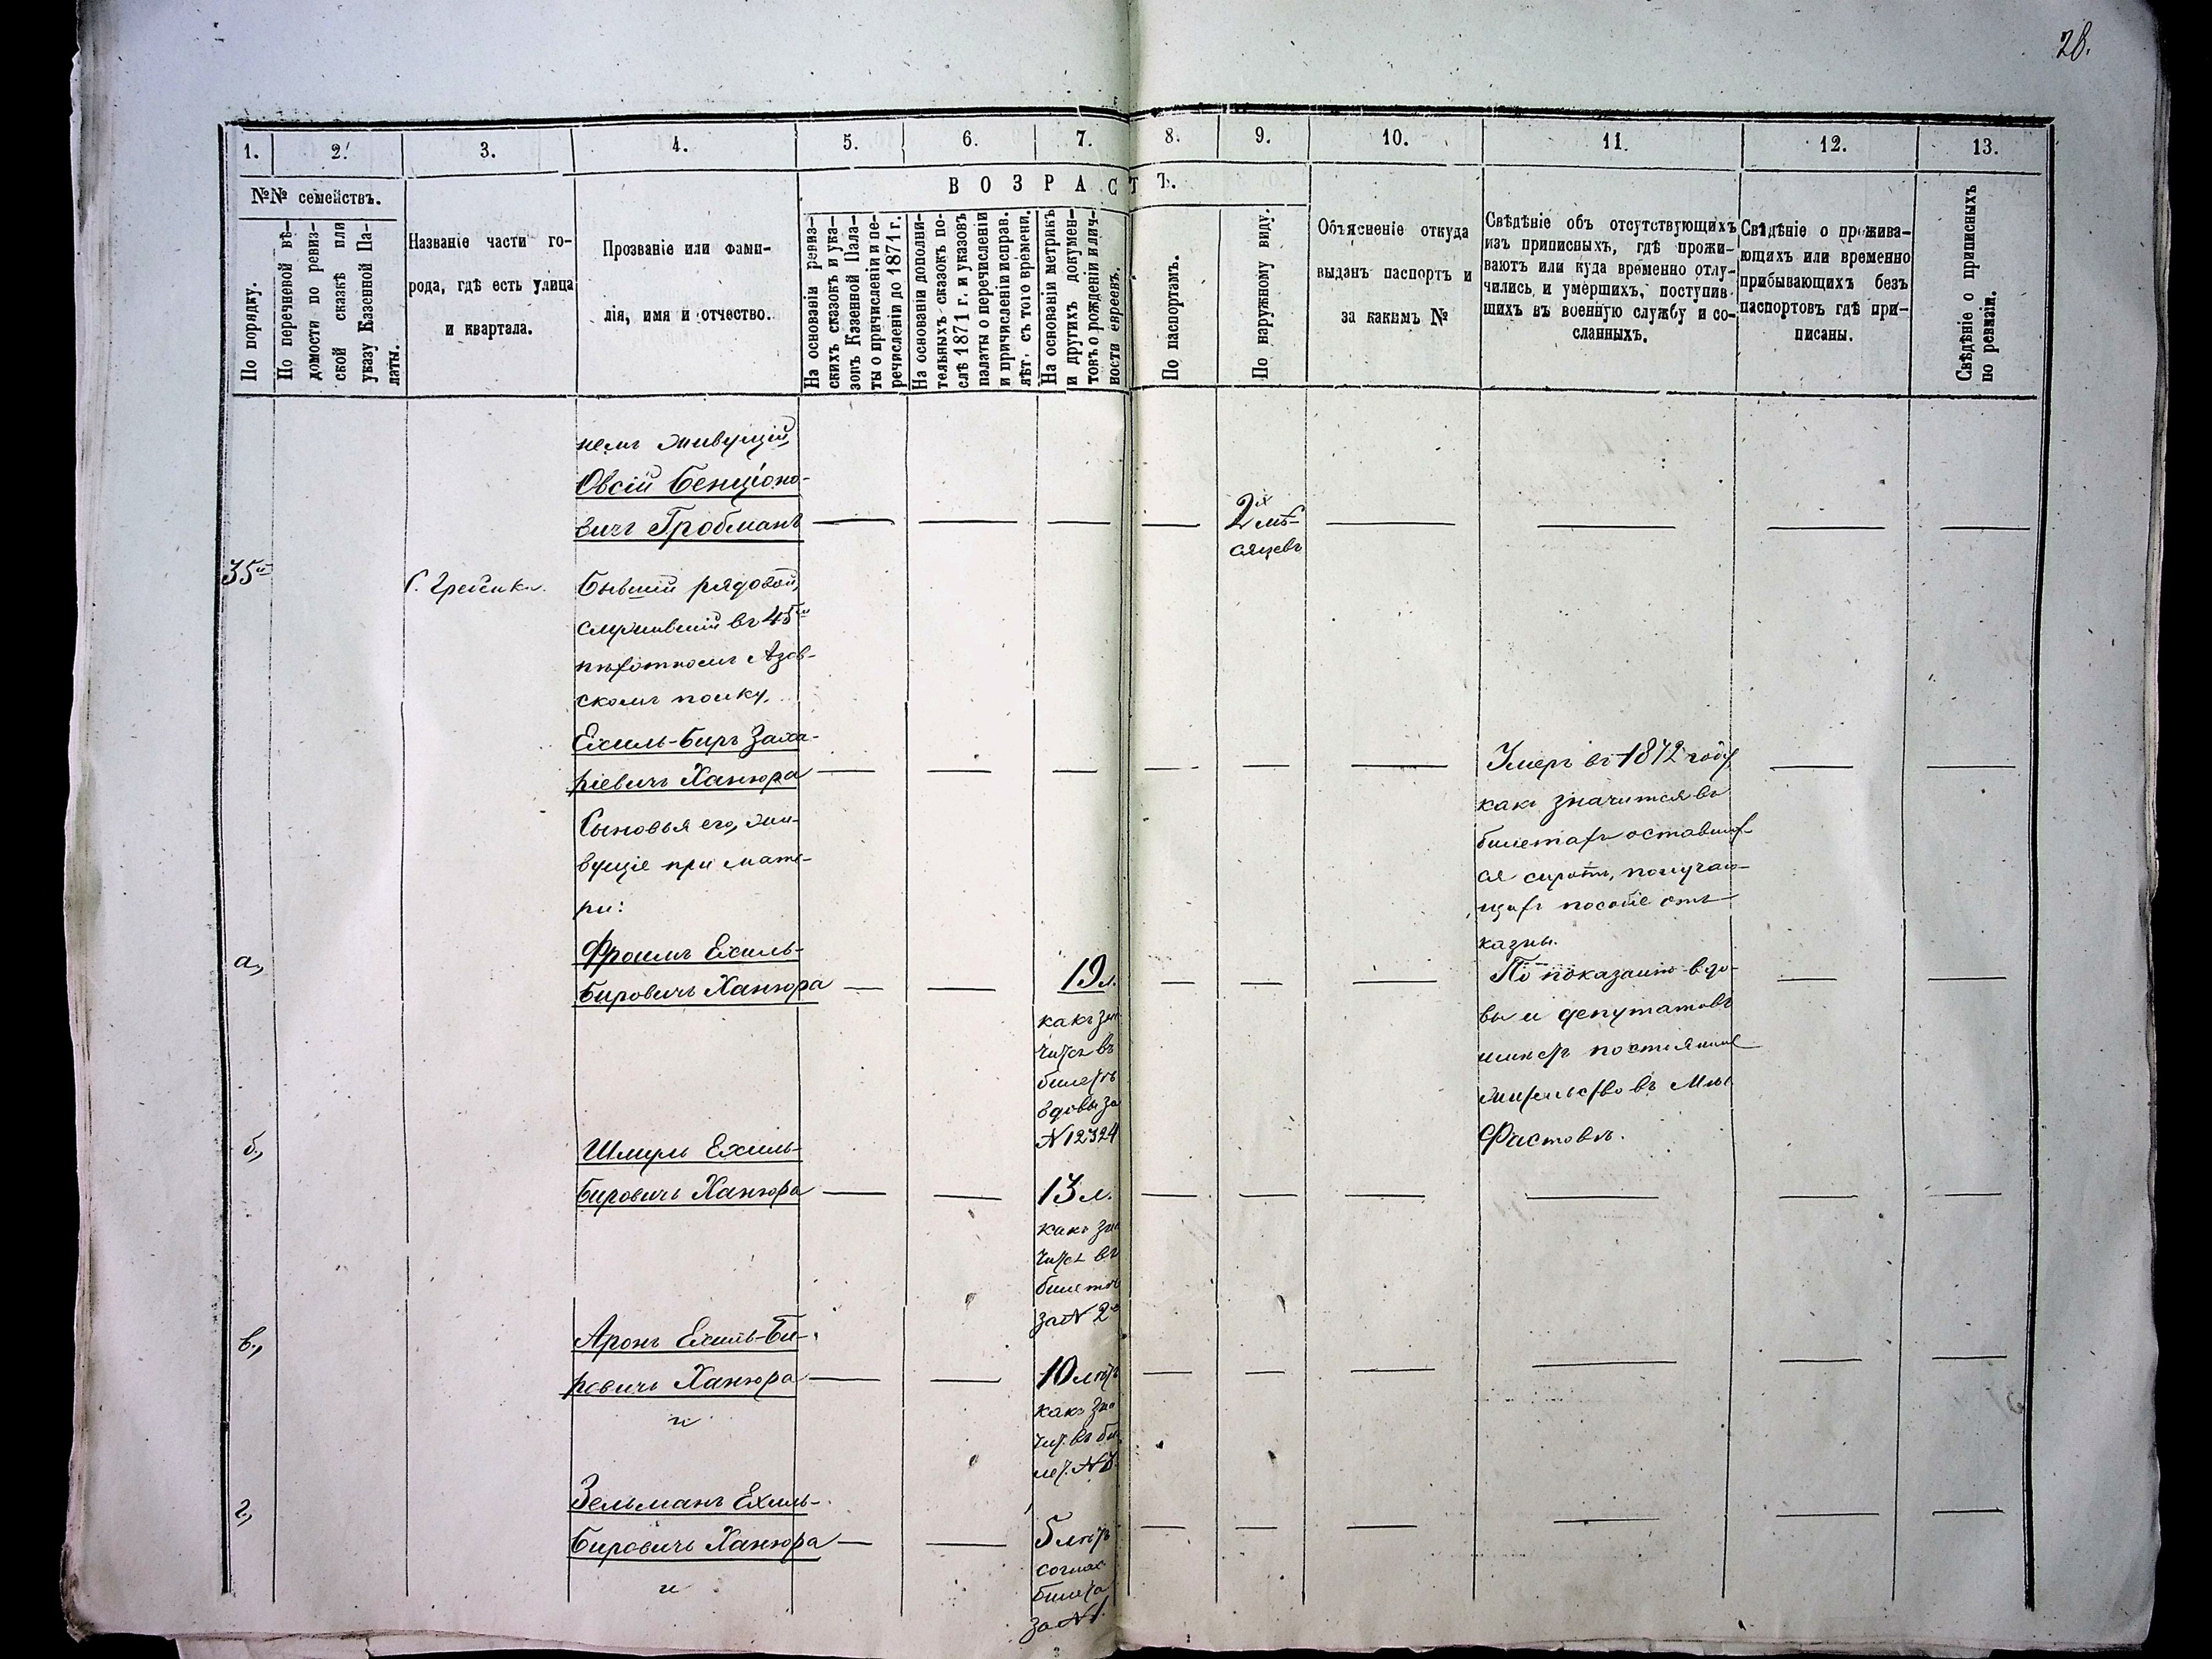 28.
1. 2. 3. 4. 5. 6. 7. 8. 9. 10. 11. 12. 13.
№№ семействъ.
ВОЗРАСТЪ.
По порядку.
По перечневой вѣ-
домости по ревиз-
ской сказкѣ или
указу Казенной Па-
латы.
Названіе части го-
рода, гдѣ есть улица
и квартала.
Прозваніе или фами-
лія, имя и отчество.
На основаніи ревиз-
скихъ сказокъ и ука-
зовъ Казенной Пала-
ты о причисленіи и пе-
речисленіи до 1871 г.
На основаніи дополни-
тельныхъ сказокъ по-
слѣ 1871 г. и указовъ
палаты о перечисленіи
и причисленіи исправ.
лѣт. съ того времени.
На основаніи метрикъ
и другихъ докумен-
товъ о рожденіи и лич-
ности евреевъ.
По паспортамъ.
По наружному виду.
Объясненіе откуда
выданъ паспортъ и
за какимъ №
Свѣдѣніе объ отсутствующихъ
изъ приписныхъ, гдѣ прожи-
ваютъ или куда временно отлу-
чились и умершихъ, поступив-
шихъ въ военную службу и со-
сланныхъ.
Свѣдѣніе о прожива-
ющихъ или временно
прибывающихъ безъ
паспортовъ гдѣ при-
писаны.
Свѣдѣніе о приписныхъ
по ревизіи.
немъ живущій
Овсій Бенціоно-
вичъ Гробманъ
2х мѣ-
сяцевъ
35й
С. Гребенка.
Бывшій рядовой,
служившій въ 45й
пѣхотномъ Азов-
скомъ полку,
Ехиль-Биръ Заха-
ріевичъ Ханюра
Умеръ въ 1872 году,
какъ значится въ
билетахъ оставших-
ся сиротъ, получаю-
щихъ пособіе отъ
казны.
Сыновья его, жи-
вущіе при мате-
ри:
а,
Фроимъ Ехиль-
Бировичъ Ханюра
19 л.
какъ зна
чится въ
билетѣ
вдовы за
№ 12324
По показанію вдо-
вы и депутатовъ
имѣетъ постоянное
жительство въ Мѣс.
Фастовѣ.
б,
Шмуль Ехиль-
Бировичъ Ханюра
13 л.
какъ зна
чится въ
билетѣ
за № 2
в,
Аронъ Ехиль-Би-
ровичъ Ханюра
и
10 лѣтъ
какъ зна
чит. въ би
лет. № 3
г,
Зельманъ Ехиль-
Бировичъ Ханюра
и
5 лѣтъ
соглас
билета
за № 1.